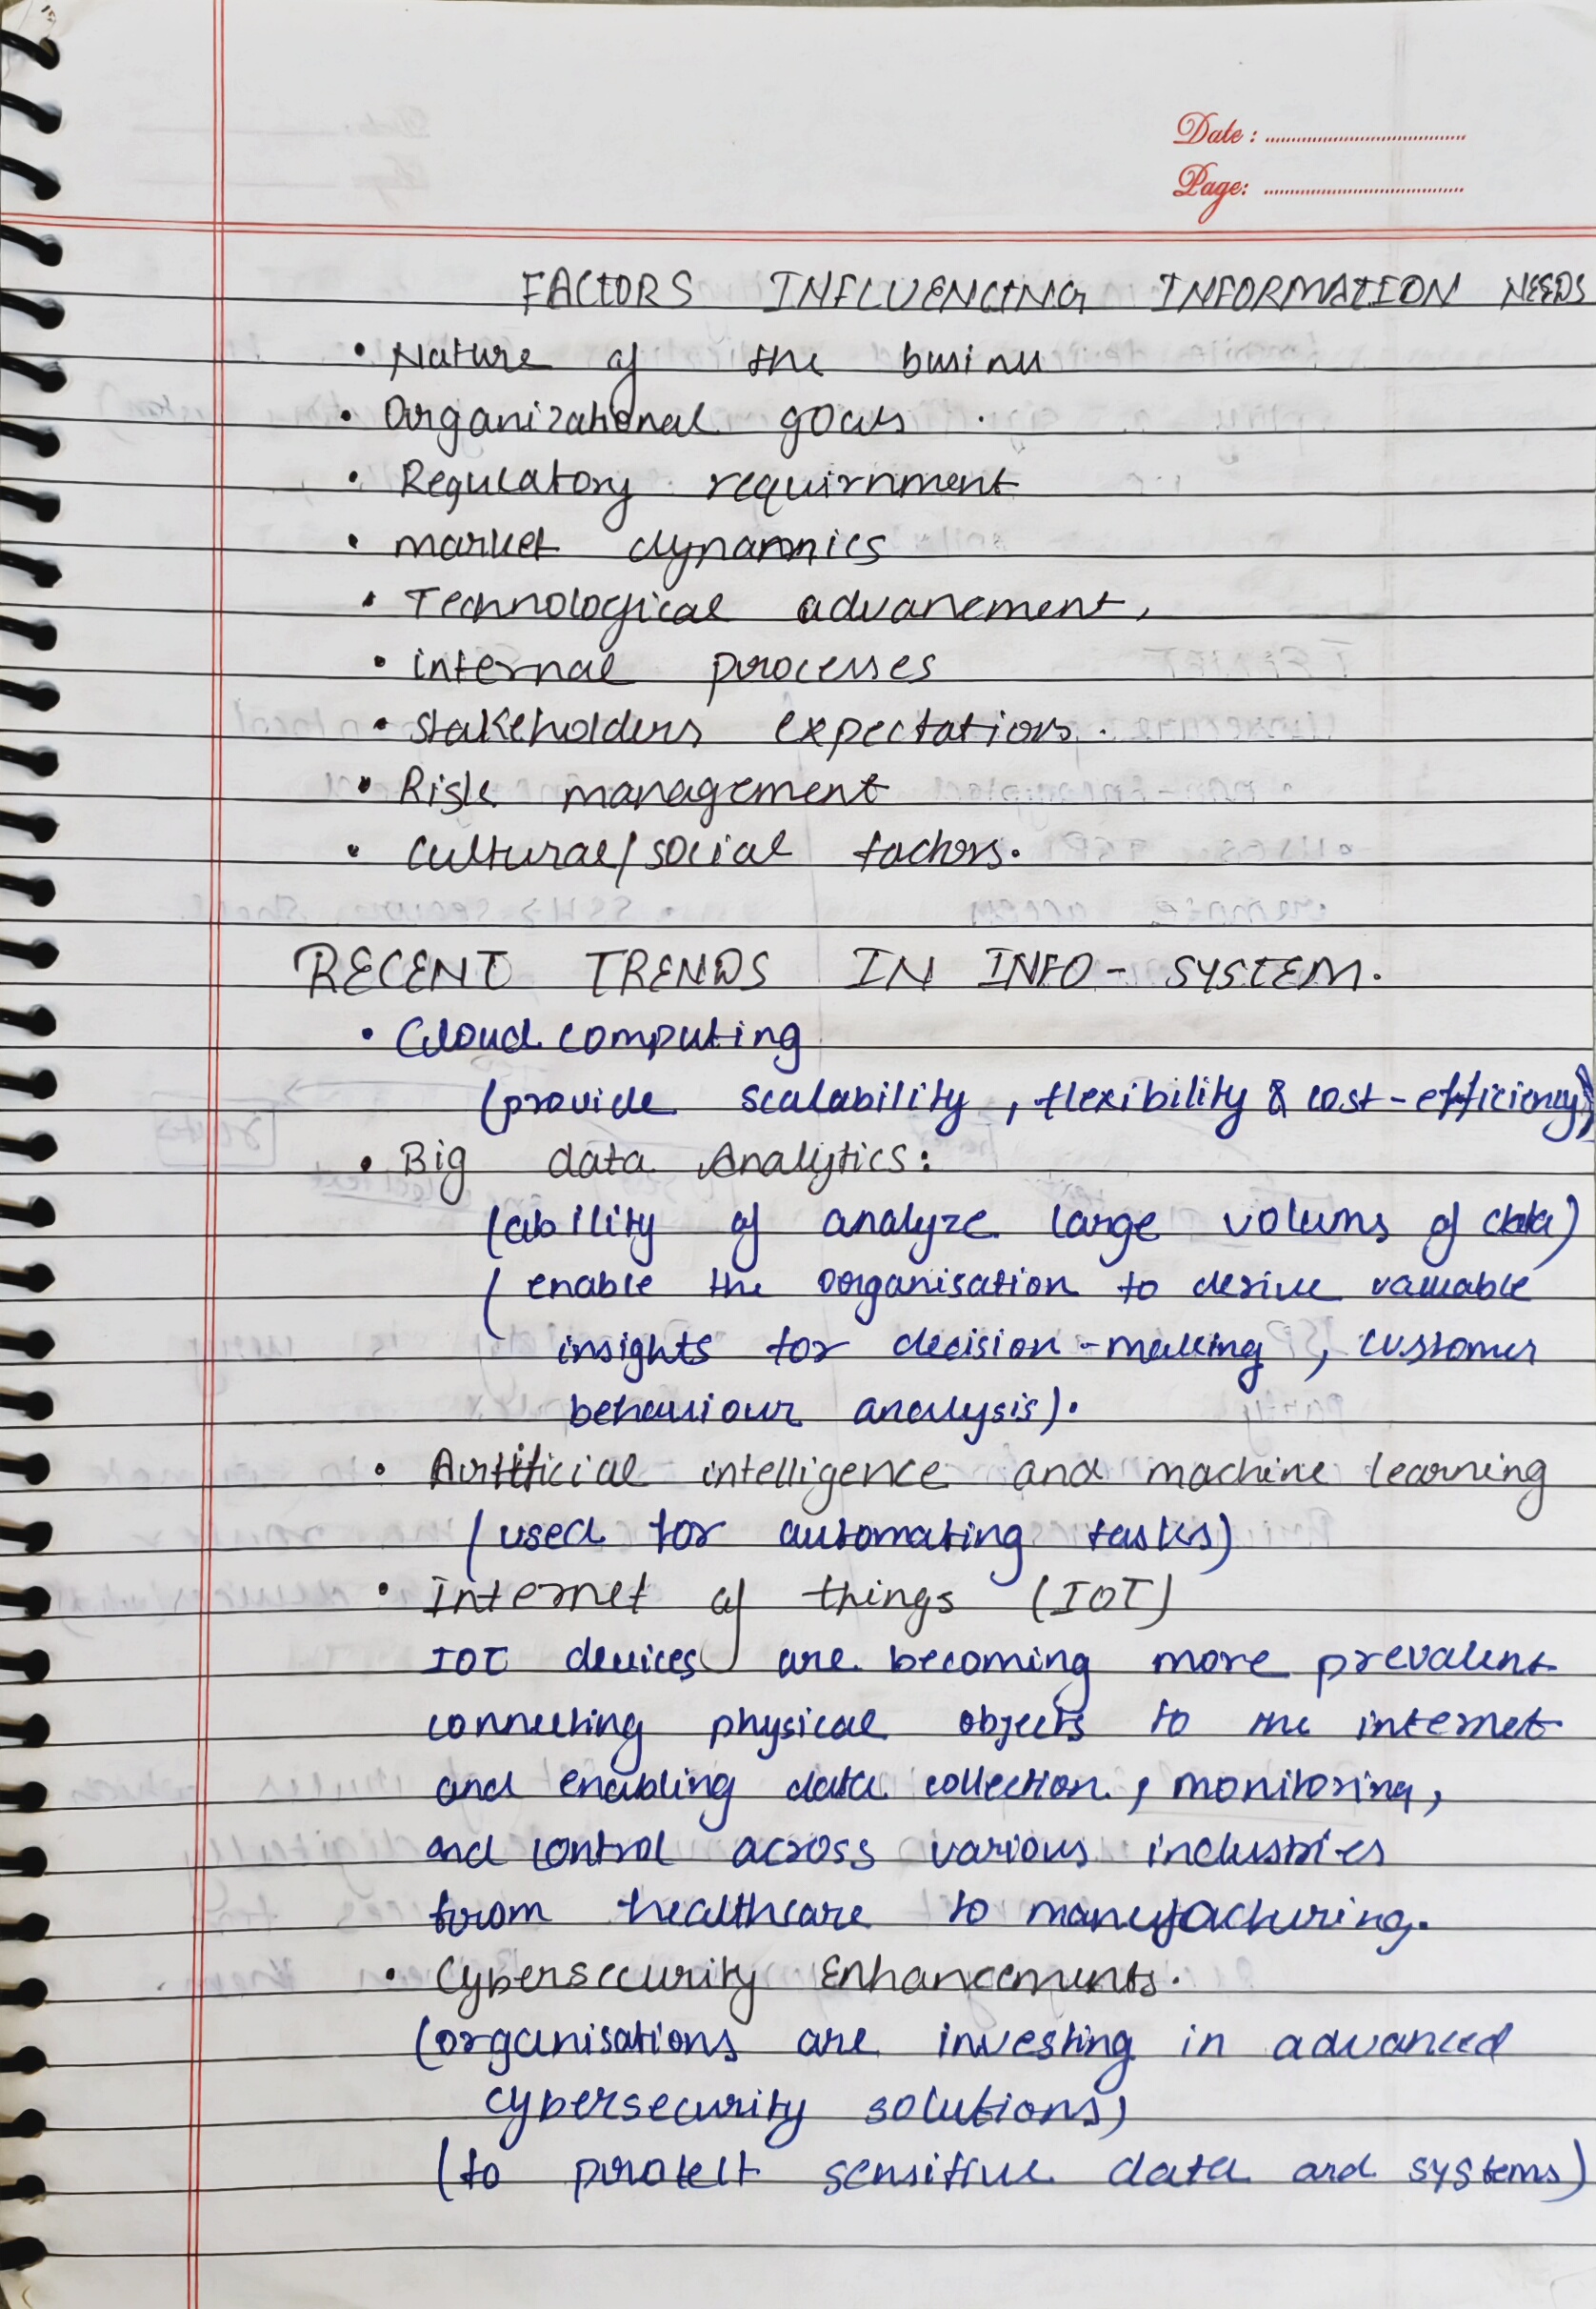 Date :
Page:
FACTORS INFLUENCING INFORMATION NEEDS
• Nature of the busines
• Organizational goals .
• Regulatory requirnment
• market dynamnics
• Technological advanement,
• internal processes
• stakeholders expectations.
• Risk management
• cultural/social factors.
RECENT TRENDS IN INFO-SYSTEM.
• Cloud computing
(provide scalability, flexibility & cost-efficiency)
• Big data Analytics:
(ability of analyze large volums of data)
( enable the organisation to derive valuable
insights for decision-making, customer
behaviour analysis).
• Artificial intelligence and machine learning
(used for automating tasks)
• Internet of things (IOT)
IOT devices are becoming more prevalent
connecting physical objects to the internet
and enabling data collection, monitoring,
and control across various industries
from healthcare to manufacturing.
• Cybersecurity Enhancements.
(organisations are investing in advanced
cybersecurity solutions)
(to protect sensitive data and systems)